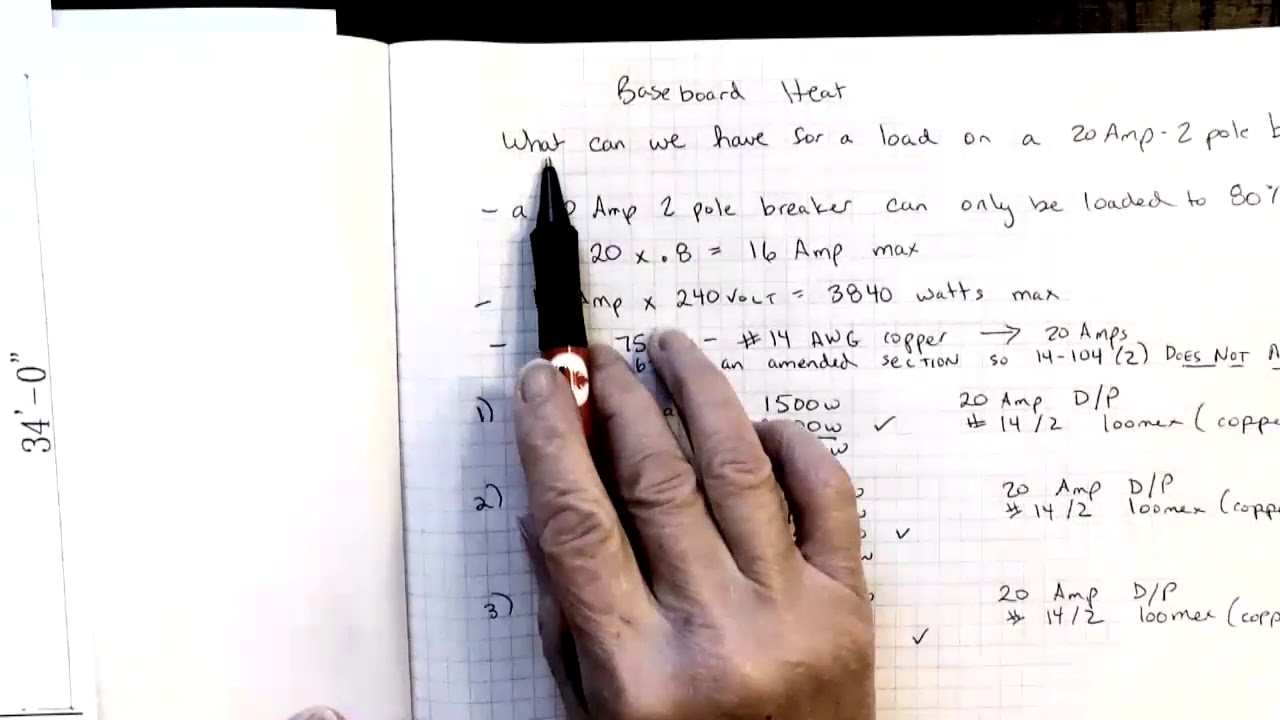 Baseboard Heat
What can we have for a load on a 20 Amp - 2 pole
- a Amp 2 pole breaker can only be loaded to 80%
20 x .8 = 16 Amp max
- Amp x 240 VOLT = 3840 watts max
- 75 - #14 AWG copper → 20 Amps
an amended section so 14-104 (2) DOES NOT
1) 1500w 20 Amp D/P
✓ # 14/2 loomex (coppe
2) 20 Amp D/P
✓ # 14/2 loomex (coppe
3) 20 Amp D/P
✓ # 14/2 loomex (coppe
34'-0"